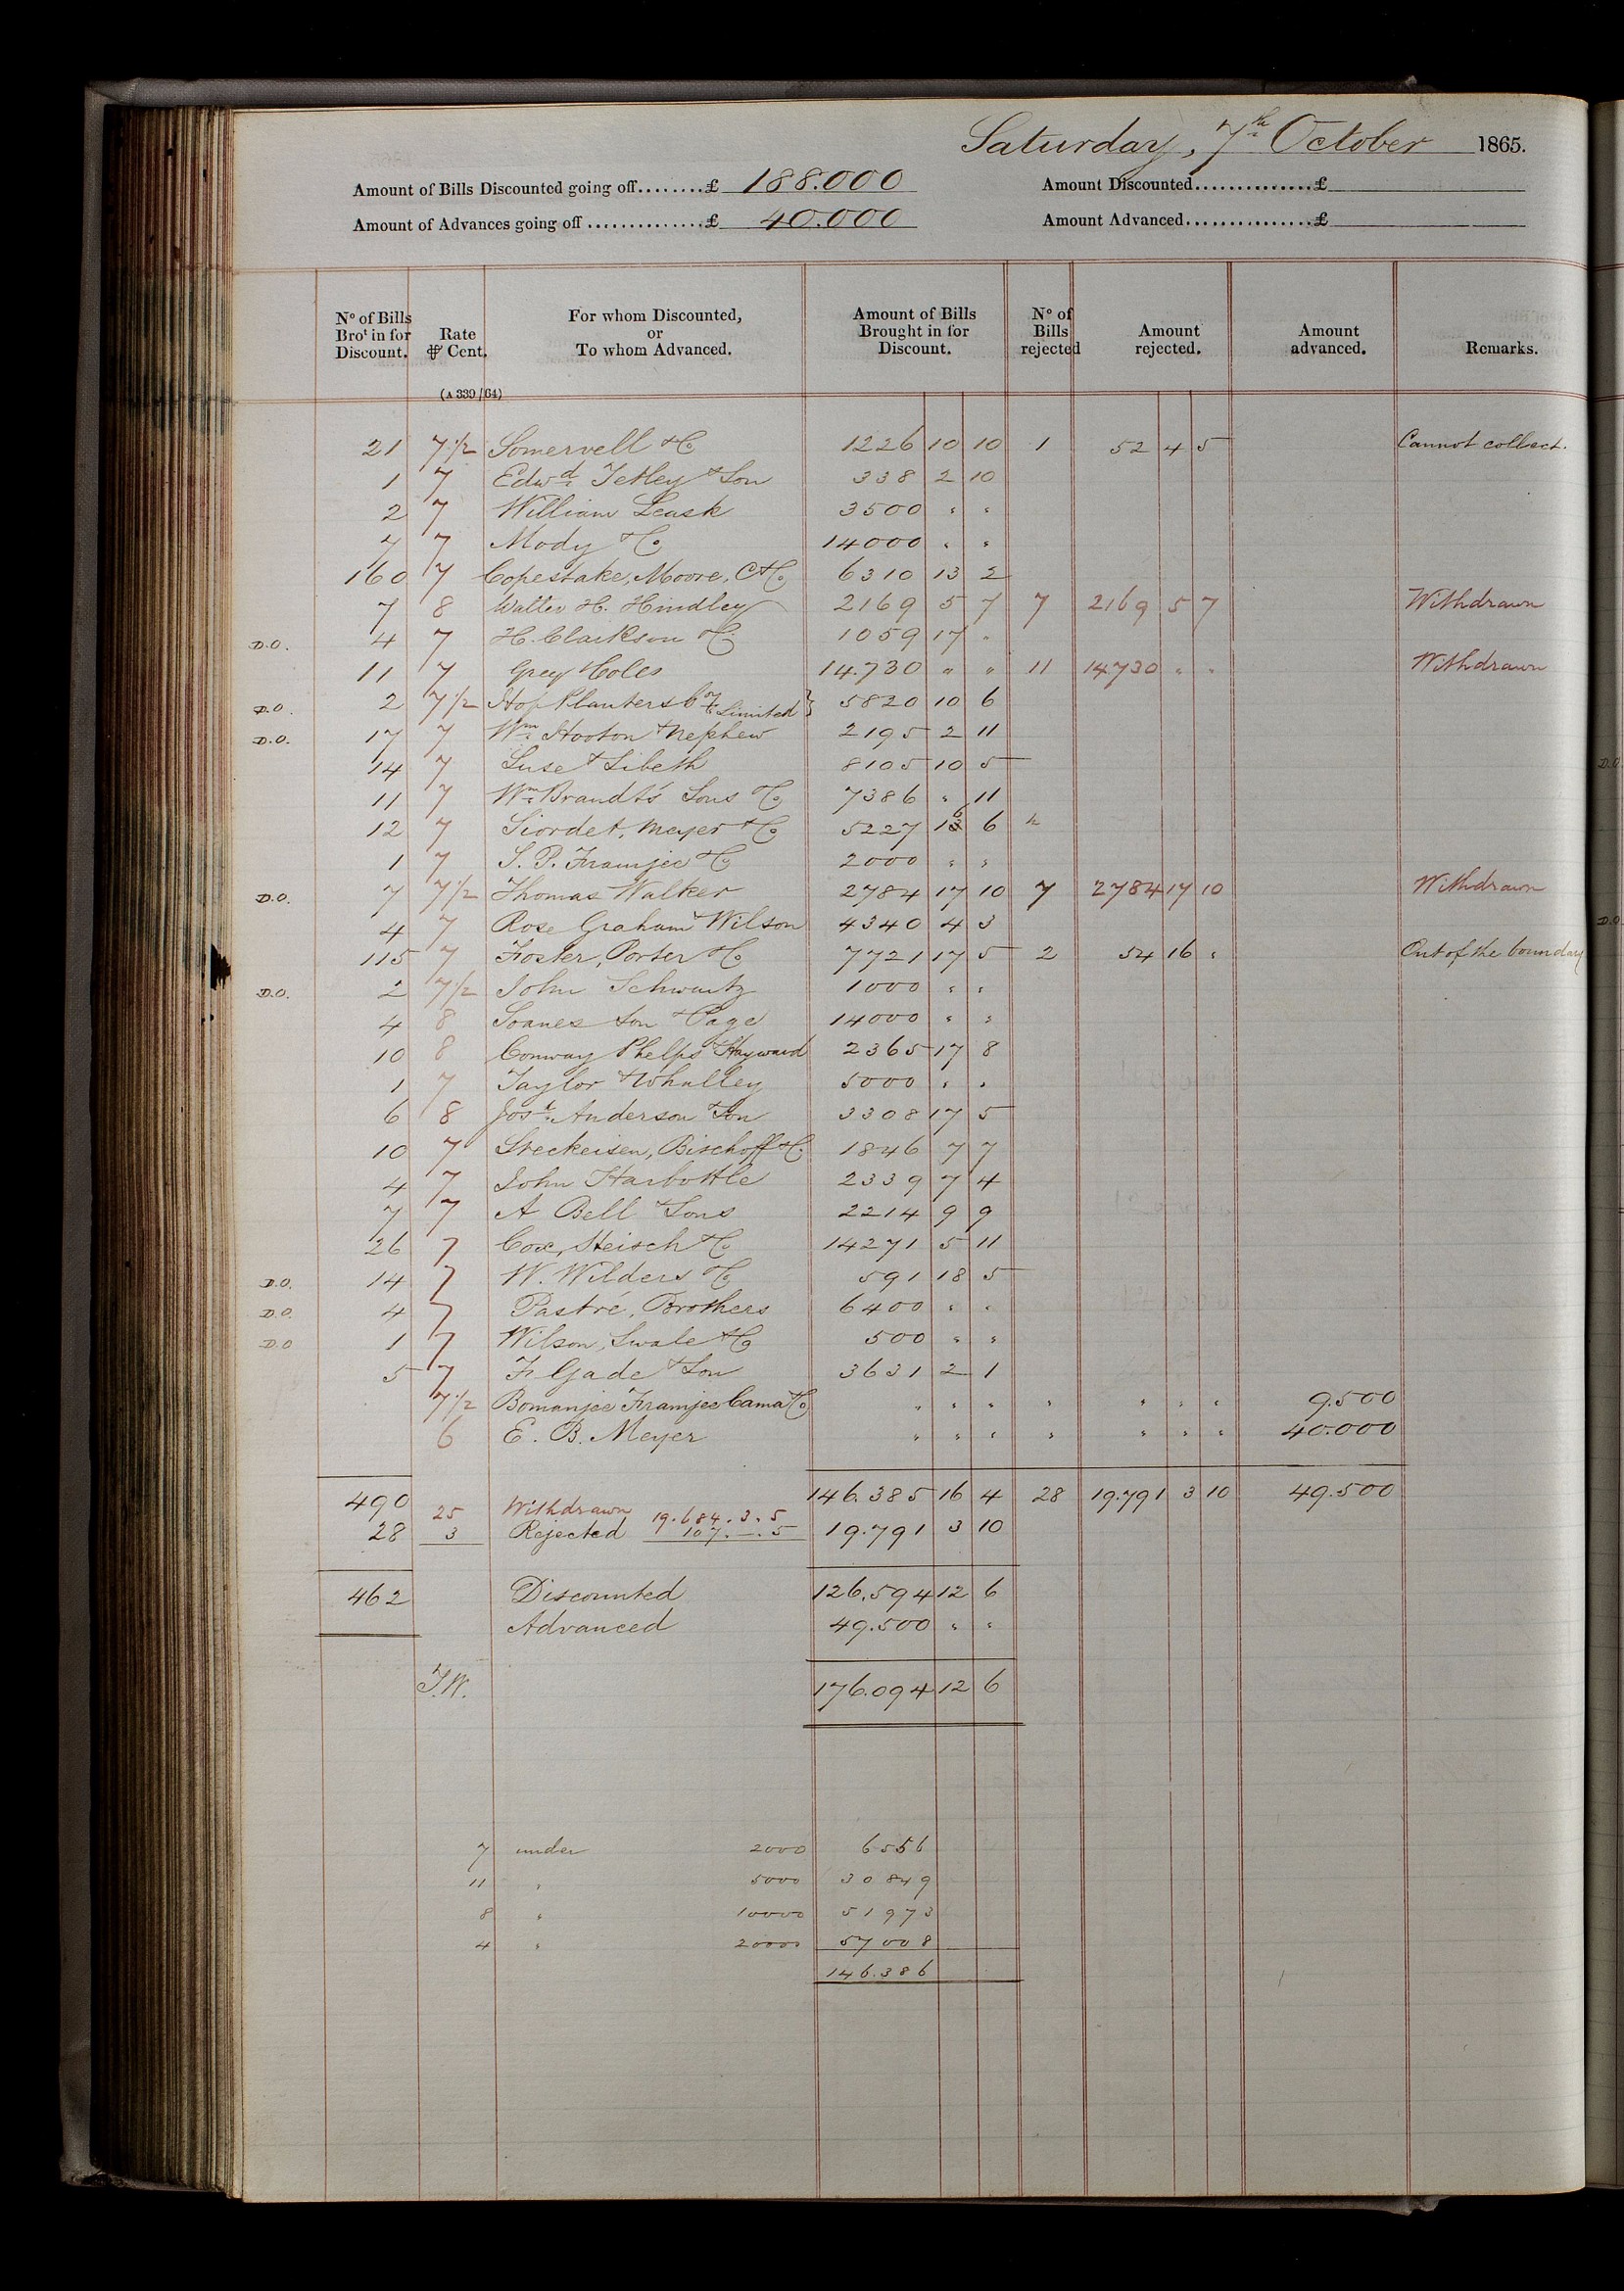 Saturday, 7th October 1865.
Amount of Bills Discounted going off........£ 188.000 Amount Discounted..............£
Amount of Advances going off..............£ 40.000 Amount Advanced...............£
No of Bills Brot in for Discount. Rate ⅌ Cent. For whom Discounted, or To whom Advanced. Amount of Bills Brought in for Discount. No of Bills rejected Amount rejected. Amount advanced. Remarks.
(A 339/64)
21 7 1/2 Somervell & Co 1226 10 10 1 52 4 5 Cannot collect.
1 7 Edwd Tetley & Son 338 2 10
2 7 William Leask 3500 " "
7 7 Mody & Co 14000 " "
160 7 Copestake, Moore, C & Co 6310 13 2
7 8 Walter H. Hindley 2169 5 7 7 2169 5 7 Withdrawn
D.O. 4 7 H. Clarkson & Co 1059 17 "
11 7 Grey & Coles 14.730 " " 11 14730 " " Withdrawn
D.O. 2 7 1/2 Hop Planters Coy Limited } 5820 10 6
D.O. 17 7 Wm Hooton & Nephew 2195 2 11
14 7 Luse & Libeth 8105 10 5
11 7 Wm Brandt's Sons & Co 7386 " 11
12 7 Siordet, Meyer & Co 5227 16 6
1 7 S. P. Framjee & Co 2000 " "
D.O. 7 7 1/2 Thomas Walker 2784 17 10 7 2784 17 10 Withdrawn
4 7 Rose Graham & Wilson 4340 4 3
115 7 Foster, Porter & Co 7721 17 5 2 54 16 " Out of the boundary
D.O. 2 7 1/2 John Schwartz 1000 " "
4 8 Soanes Son & Page 14000 " "
10 8 Conway Phelps & Hayward 2365 17 8
1 7 Taylor & Whalley 5000 " "
6 8 Josh Anderson & Son 3308 17 5
10 7 Steckeisen, Bischoff & Co 1846 7 7
4 7 John Harbottle 2339 7 4
7 7 A Bell & Sons 2214 9 9
26 7 Cox, Steisch & Co 14271 5 11
D.O. 14 7 W. Wilders & Co 591 18 5
D.O. 4 7 Pastré, Brothers 6400 " "
D.O 1 7 Wilson, Swale & Co 500 " "
5 7 F. Gade & Son 3631 2 1
7 1/2 Bomanjee Framjee Cama & Co " " " " " " " 9.500
6 E. B. Meyer " " " " " " " 40.000
490 146.385 16 4 28 19.791 3 10 49.500
25 Withdrawn 19.684.3.5
28 3 Rejected 107.—.5 19.791 3 10
462 Discounted 126.594 12 6
Advanced 49.500 " "
J.W. 176.094 12 6
7 under 2000 6556
11 " 5000 30849
8 " 10000 51973
4 " 20000 57008
146.386